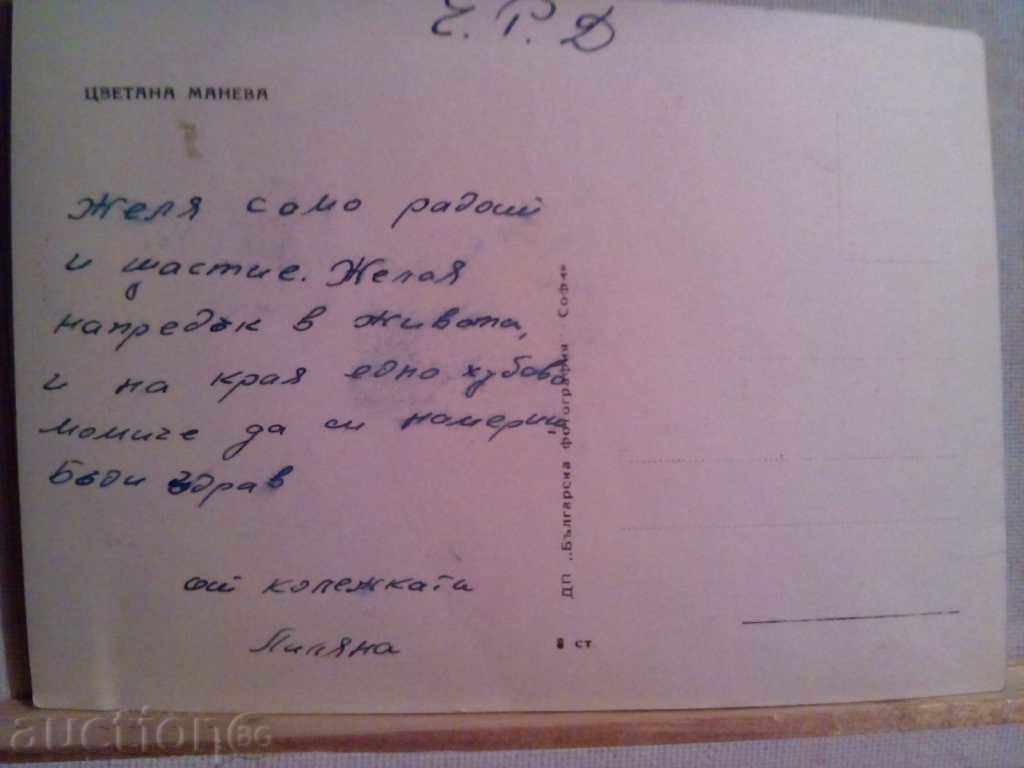 Ч. Р. Д
ЦВЕТАНА МАНЕВА
Желя само радост
и щастие. Желая
напредък в живота,
и на края едно хубаво
момиче да си намериш
Бъди здрав
от колежката
Лиляна
ДП „Българска фотография“ София
8 ст
auction BG